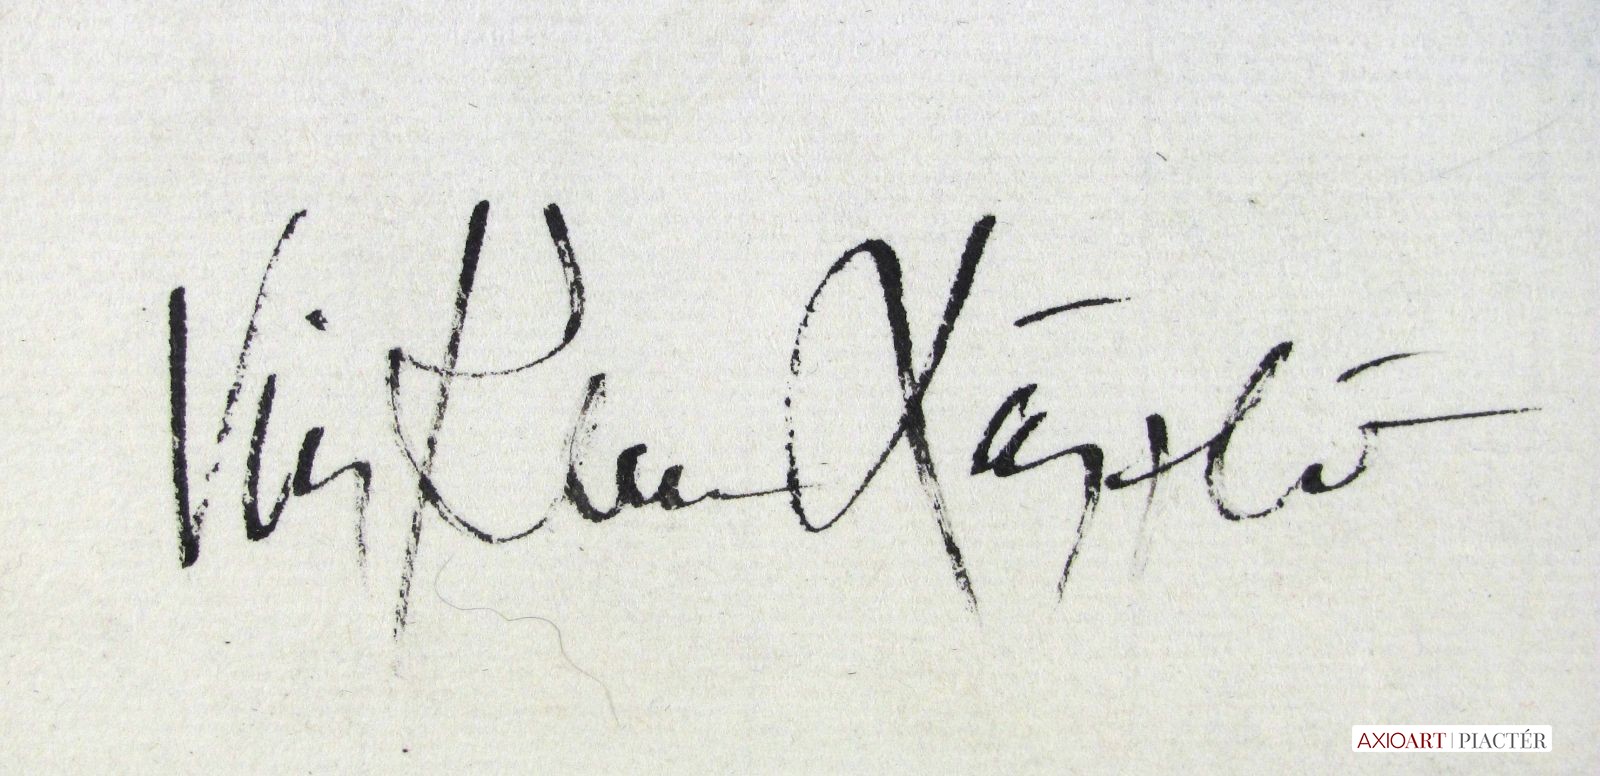 Vinkler László
AXIOART | PIACTÉR